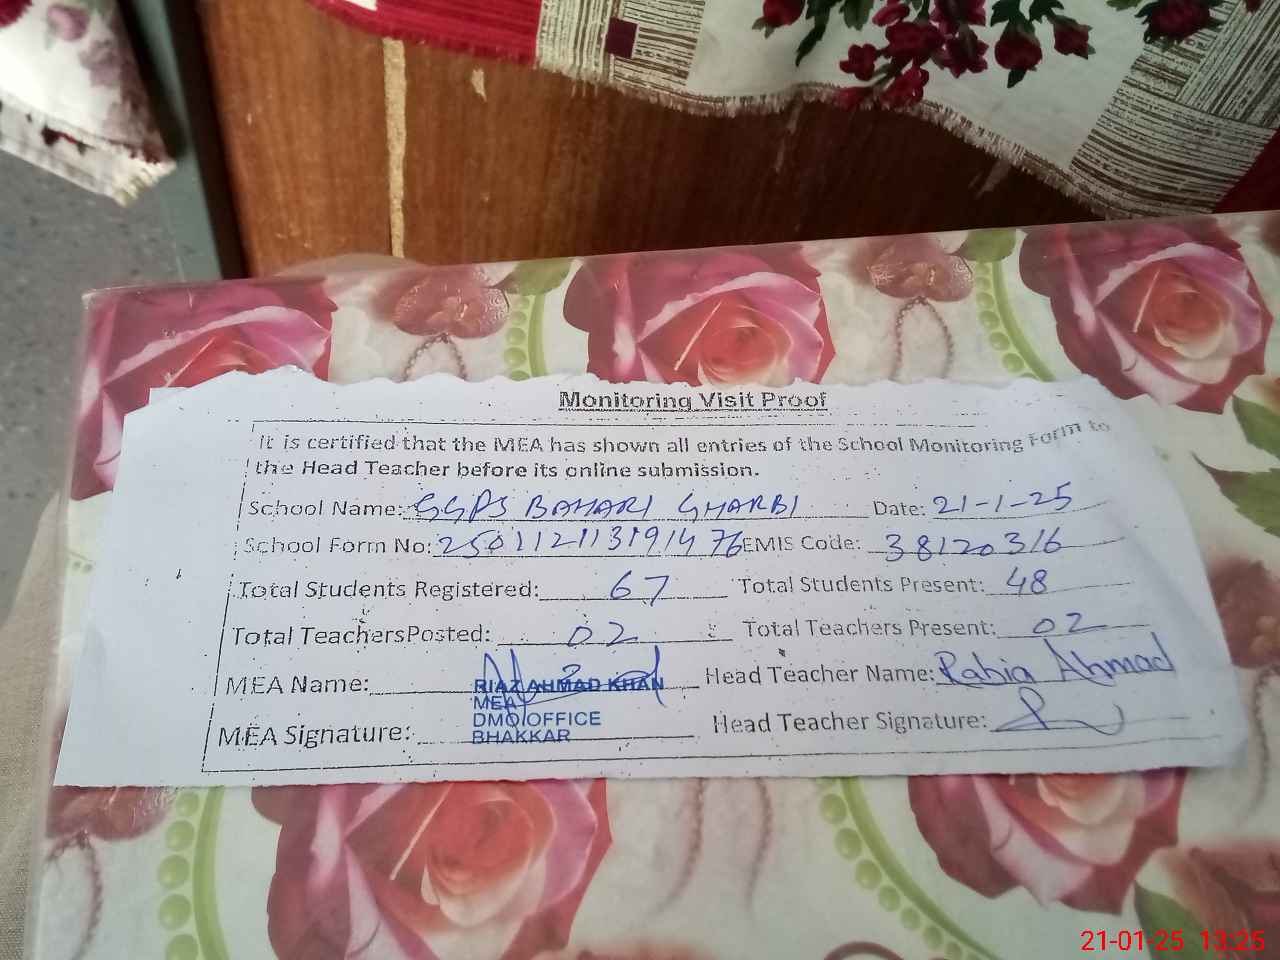 Monitoring Visit Proof
It is certified that the MEA has shown all entries of the School Monitoring Form to
the Head Teacher before its online submission.
School Name: GGPS BAHARI GHARBI Date: 21-1-25
School Form No: 250112113191476 EMIS Code: 38120316
Total Students Registered: 67 Total Students Present: 48
Total TeachersPosted: 02 Total Teachers Present: 02
MEA Name: RIAZ AHMAD KHAN Head Teacher Name: Rabia Ahmad
MEA
DMO OFFICE
MEA Signature: BHAKKAR Head Teacher Signature:
21-01-25 13:25